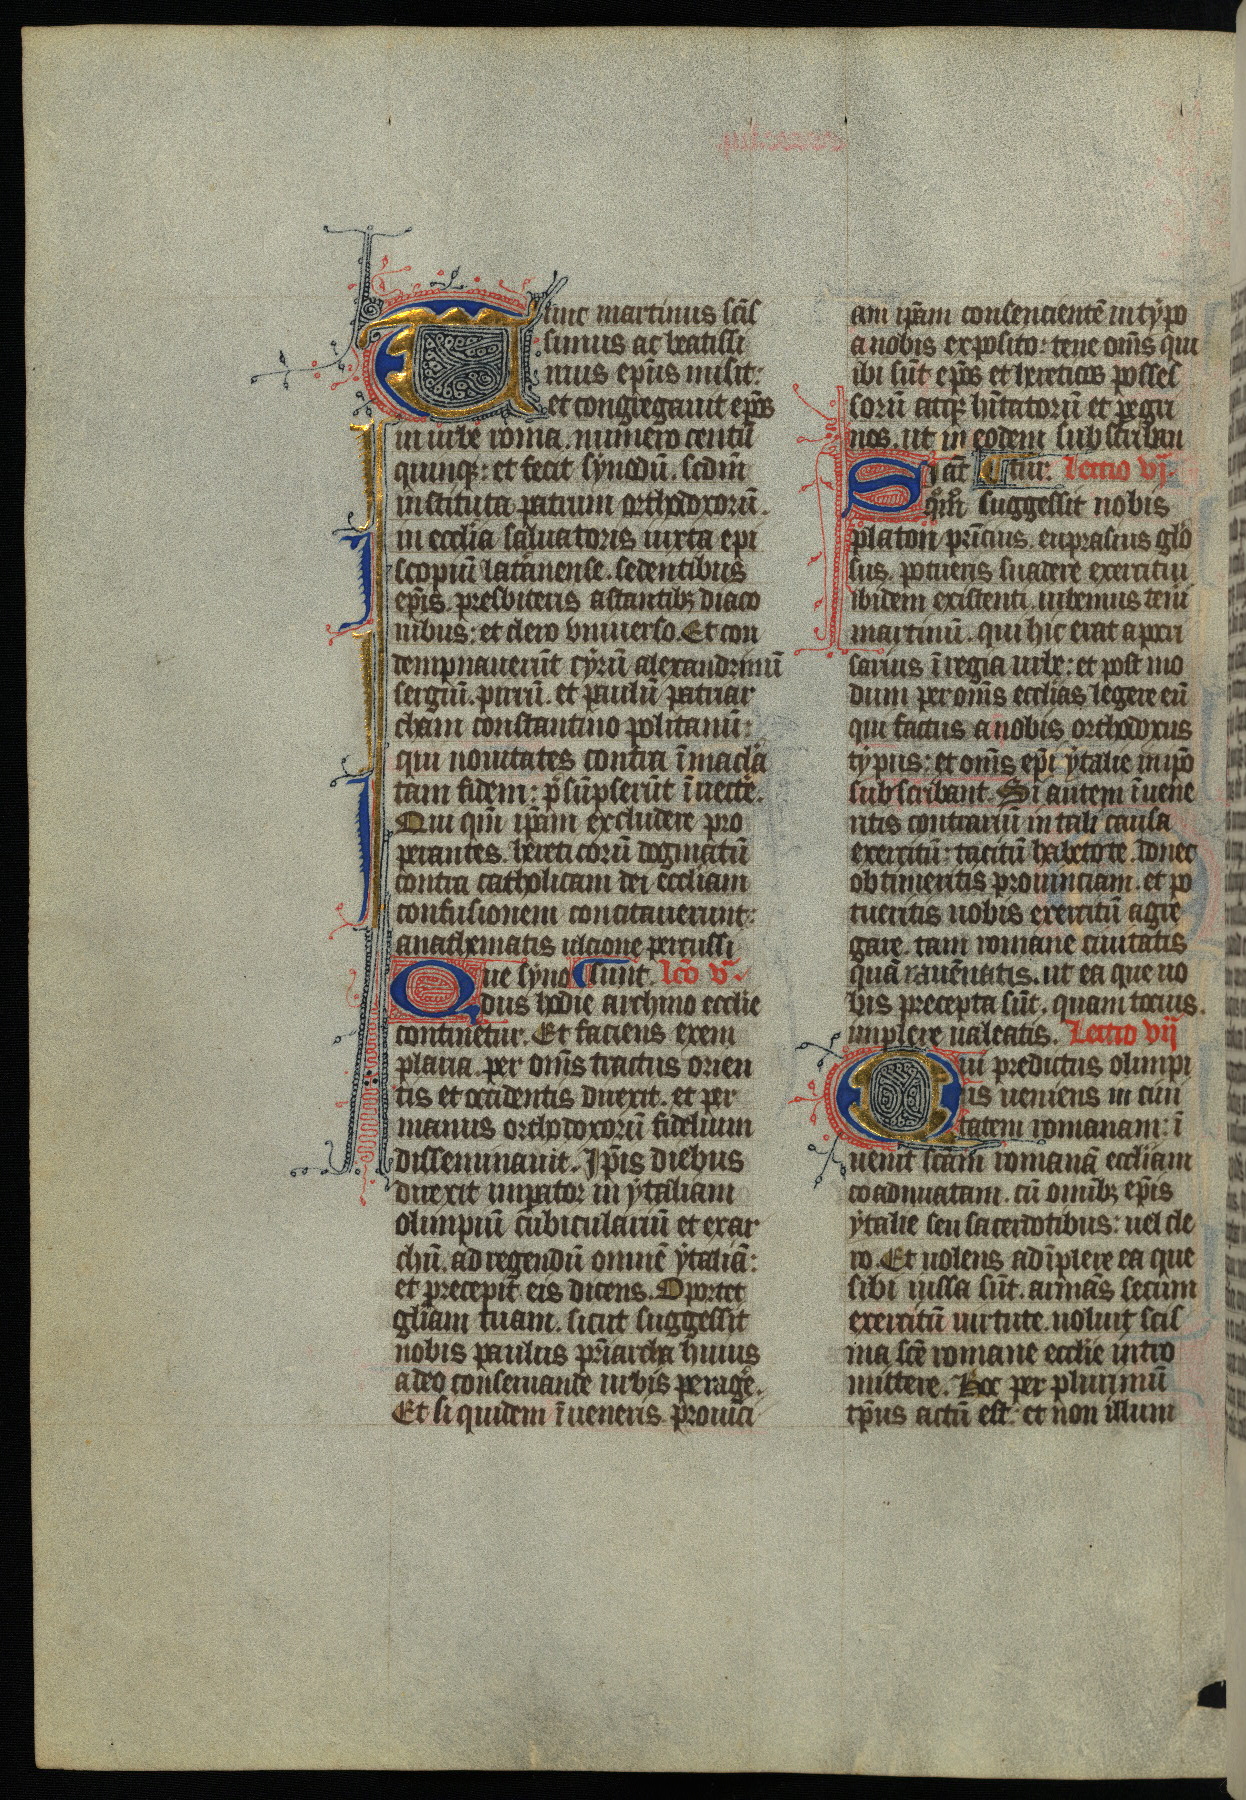 Tunc martinus sc̄is
simus ac beatissi
mus ep̄us misit:
et congregauit ep̄os
in urbe roma. numero centū
quinq;: et fecit sẏnodū. scd̄m
instituta patrum orthodoxorū.
in ecclīa saluatoris iuxta epi
scopiū lat̄anense. sedentibus
ep̄is. presbiteris astantib; diaco
nibus: et clero vniuerso. Et con
dempnauerūt cẏrū alexandrinū
sergiū. pirrū. et paulū patriar
cham constantinopolitanū:
qui nouitates contra īmacl̄a
tam fidem: p̄sūpserūt īnect̄e.
Qui qm̄ ip̄am excludere pro
perantes. hereticorū dogmatū
contra catholicam dei eccl̄iam
confusionem concitauerunt:
anathematis ulcione percussi
Que syno sunt. lc̄o v.
dus hodie archiuo eccl̄ie
continetur. Et faciens exem
plaria. per om̄s tractus orien
tis et occidentis direxit. et per
manus orthodoxorū fidelium
disseminauit. Ip̄is diebus
direxit imp̄ator in ẏtaliam
olimpiū cūbiculariū et exar
chū. ad regendū omnē ẏtaliā:
et precepit eis dicens. Oportet
gl̄iam tuam. sicut suggessit
nobis paulus pr̄iarcha huius
a deo conseruande urbis peraḡe.
Et siquidem īueneris prouīci
am ip̄am consencientē in tẏpo
a nobis exposito: tene om̄s qui
ibi sūt ep̄os et hereticos posses
sorū atq; hītatorū et pegri
nos. ut in eodem subscriban
Si at̄ tur. Lectio vj.
qm̄ suggessit nobis
platon pr̄icius. euprasius glō
sus. potueris suadere exercitui
ibidem existenti. iubemus teni
martinū. qui hic erat apocri
sarius ī regia urbe: et post mo
dum per om̄s ecclīas legere eū
qui factus a nobis orthodoxus
tẏpus: et om̄s ep̄i ẏtalie in ip̄o
subscribant. Si autem īuene
ritis contrariū in tali causa
exercitū: tacitū habetote. donec
obtineritis prouinciam. et po
tueritis uobis exercitū agre
gare. tam romane ciuitatis
quā rauēnatis. ut ea que uo
bis precepta sūt. quam tocius.
implere ualeatis. Lectio vij
Qui predictus olimpi
us ueniens in ciui
tatem romanam: ī
uenit sc̄am romanā eccl̄iam
coadunatam. cū omīb; ep̄is
ẏtalie seu sacerdotibus: uel cle
ro. Et uolens adīplere ea que
sibi iussa sūt. armās secum
exercitū uirtute. uoluit scis
ma sc̄e romane eccl̄ie intro
mittere. Hoc per plurimū
tp̄us actū est: et non illum